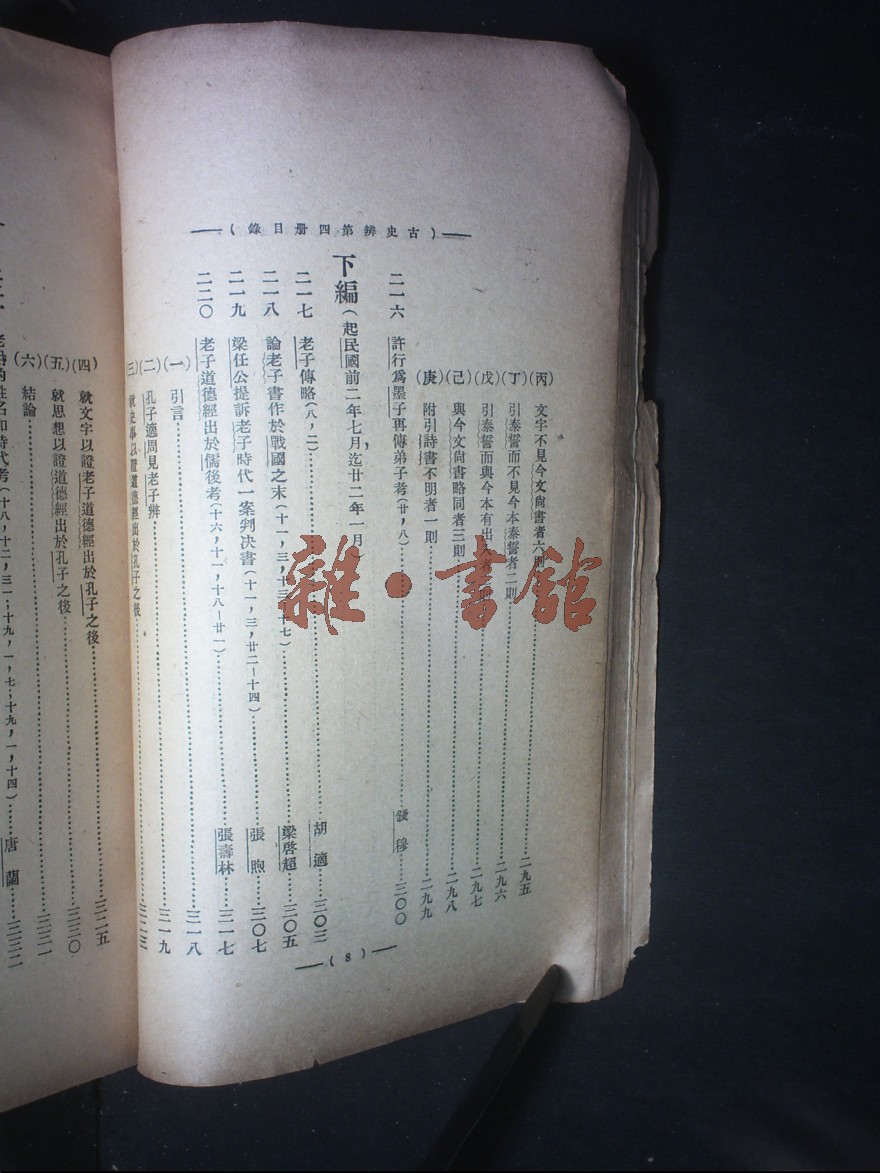 (古史辨第四册目錄)
(丙)文字不見今文尙書者六則……二九五
(丁)引泰誓而不見今本泰誓者二則……二九六
(戊)引泰誓而與今本有出入者 則……二九七
(己)與今文尙書略同者三則……二九八
(庚)附引詩書不明者一則……二九九
二一六 許行爲墨子再傳弟子考(廿,八)……錢穆……三〇〇
下編(起民國前二年七月,迄廿二年一月)
二一七 老子傳略(八,二)……胡適……三〇三
二一八 論老子書作於戰國之末(十一,三,十三—十七)……梁啓超……三〇五
二一九 梁任公提訴老子時代一案判決書(十一,三,廿二—十四)……張煦……三〇七
二二〇 老子道德經出於儒後考(十六,十一,十八—廿一)……張壽林……三一七
(一)引言……三一八
(二)孔子適周見老子辨……三一九
(三)就史事以證道德經出於孔子之後……三二三
(8)
(四)就文字以證老子道德經出於孔子之後……三二五
(五)就思想以證道德經出於孔子之後……三三〇
(六)結論……三三一
老聃的姓名和時代考(十八,十二,三一;十九,一,七—十九,一,十四)……唐蘭……三三二
雜·書館